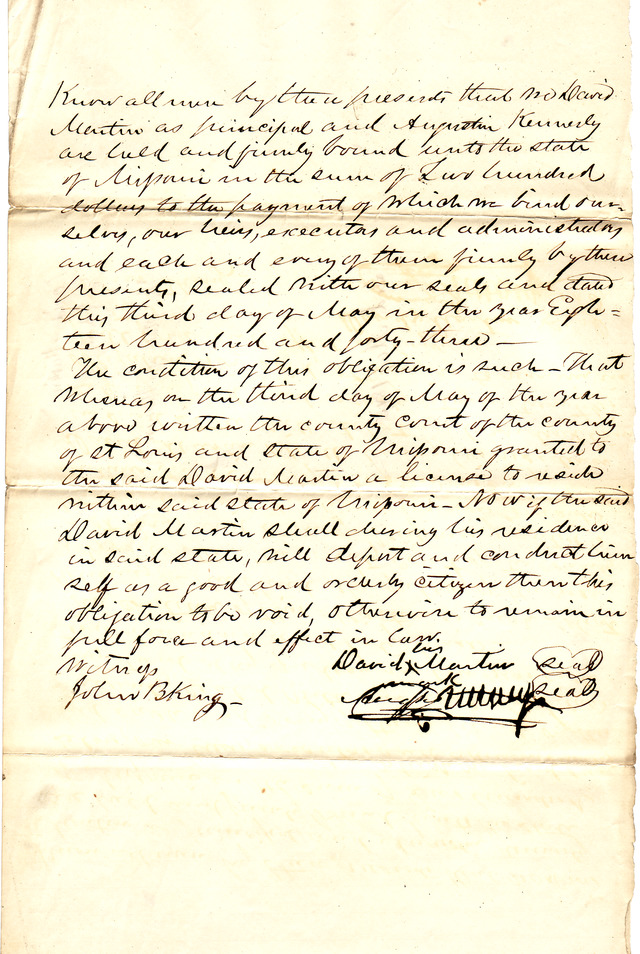 Know all men by these presents that we David
Martin as principal and Augustin Kennerly
are held and firmly bound unto the state
of Missouri in the sum of Two hundred
dollars to the payment of which we bind our=
selves, our heirs, executors and administrators
and each and every of them firmly by these
presents, sealed with our seals and dated
this third day of May in the year Eigh=
teen hundred and forty-three —
The condition of this obligation is such – That
whereas on the third day of May of the year
above written the county court of the county
of St Louis and state of Missouri granted to
the said David Martin a license to reside
within said state of Missouri – Now if the said
David Martin shall during his residence
in said state, well deport and conduct him
self as a good and orderly citizen then this
obligation to be void, otherwise to remain in
full force and effect in law.
his
Witness David X Martin seal
mark
John B King – seal